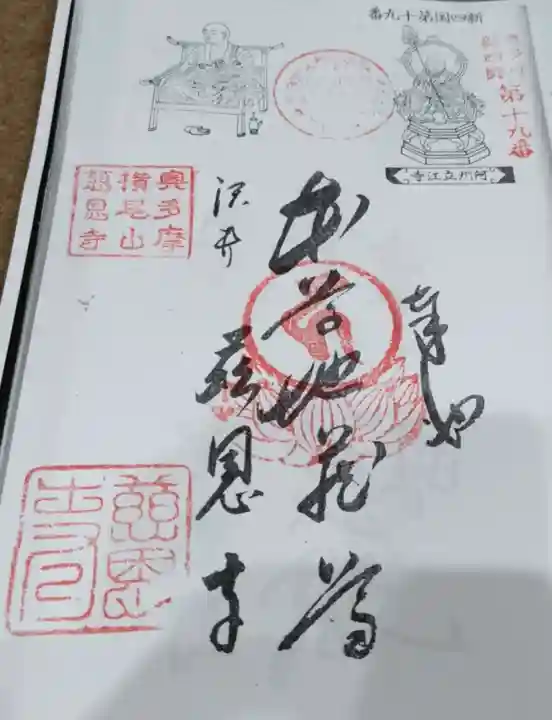 新四国第十九番
阿州立江寺
第十九番
奉拝
本尊地蔵尊
沢井
慈恩寺
奥多摩
慈恩寺
慈恩寺